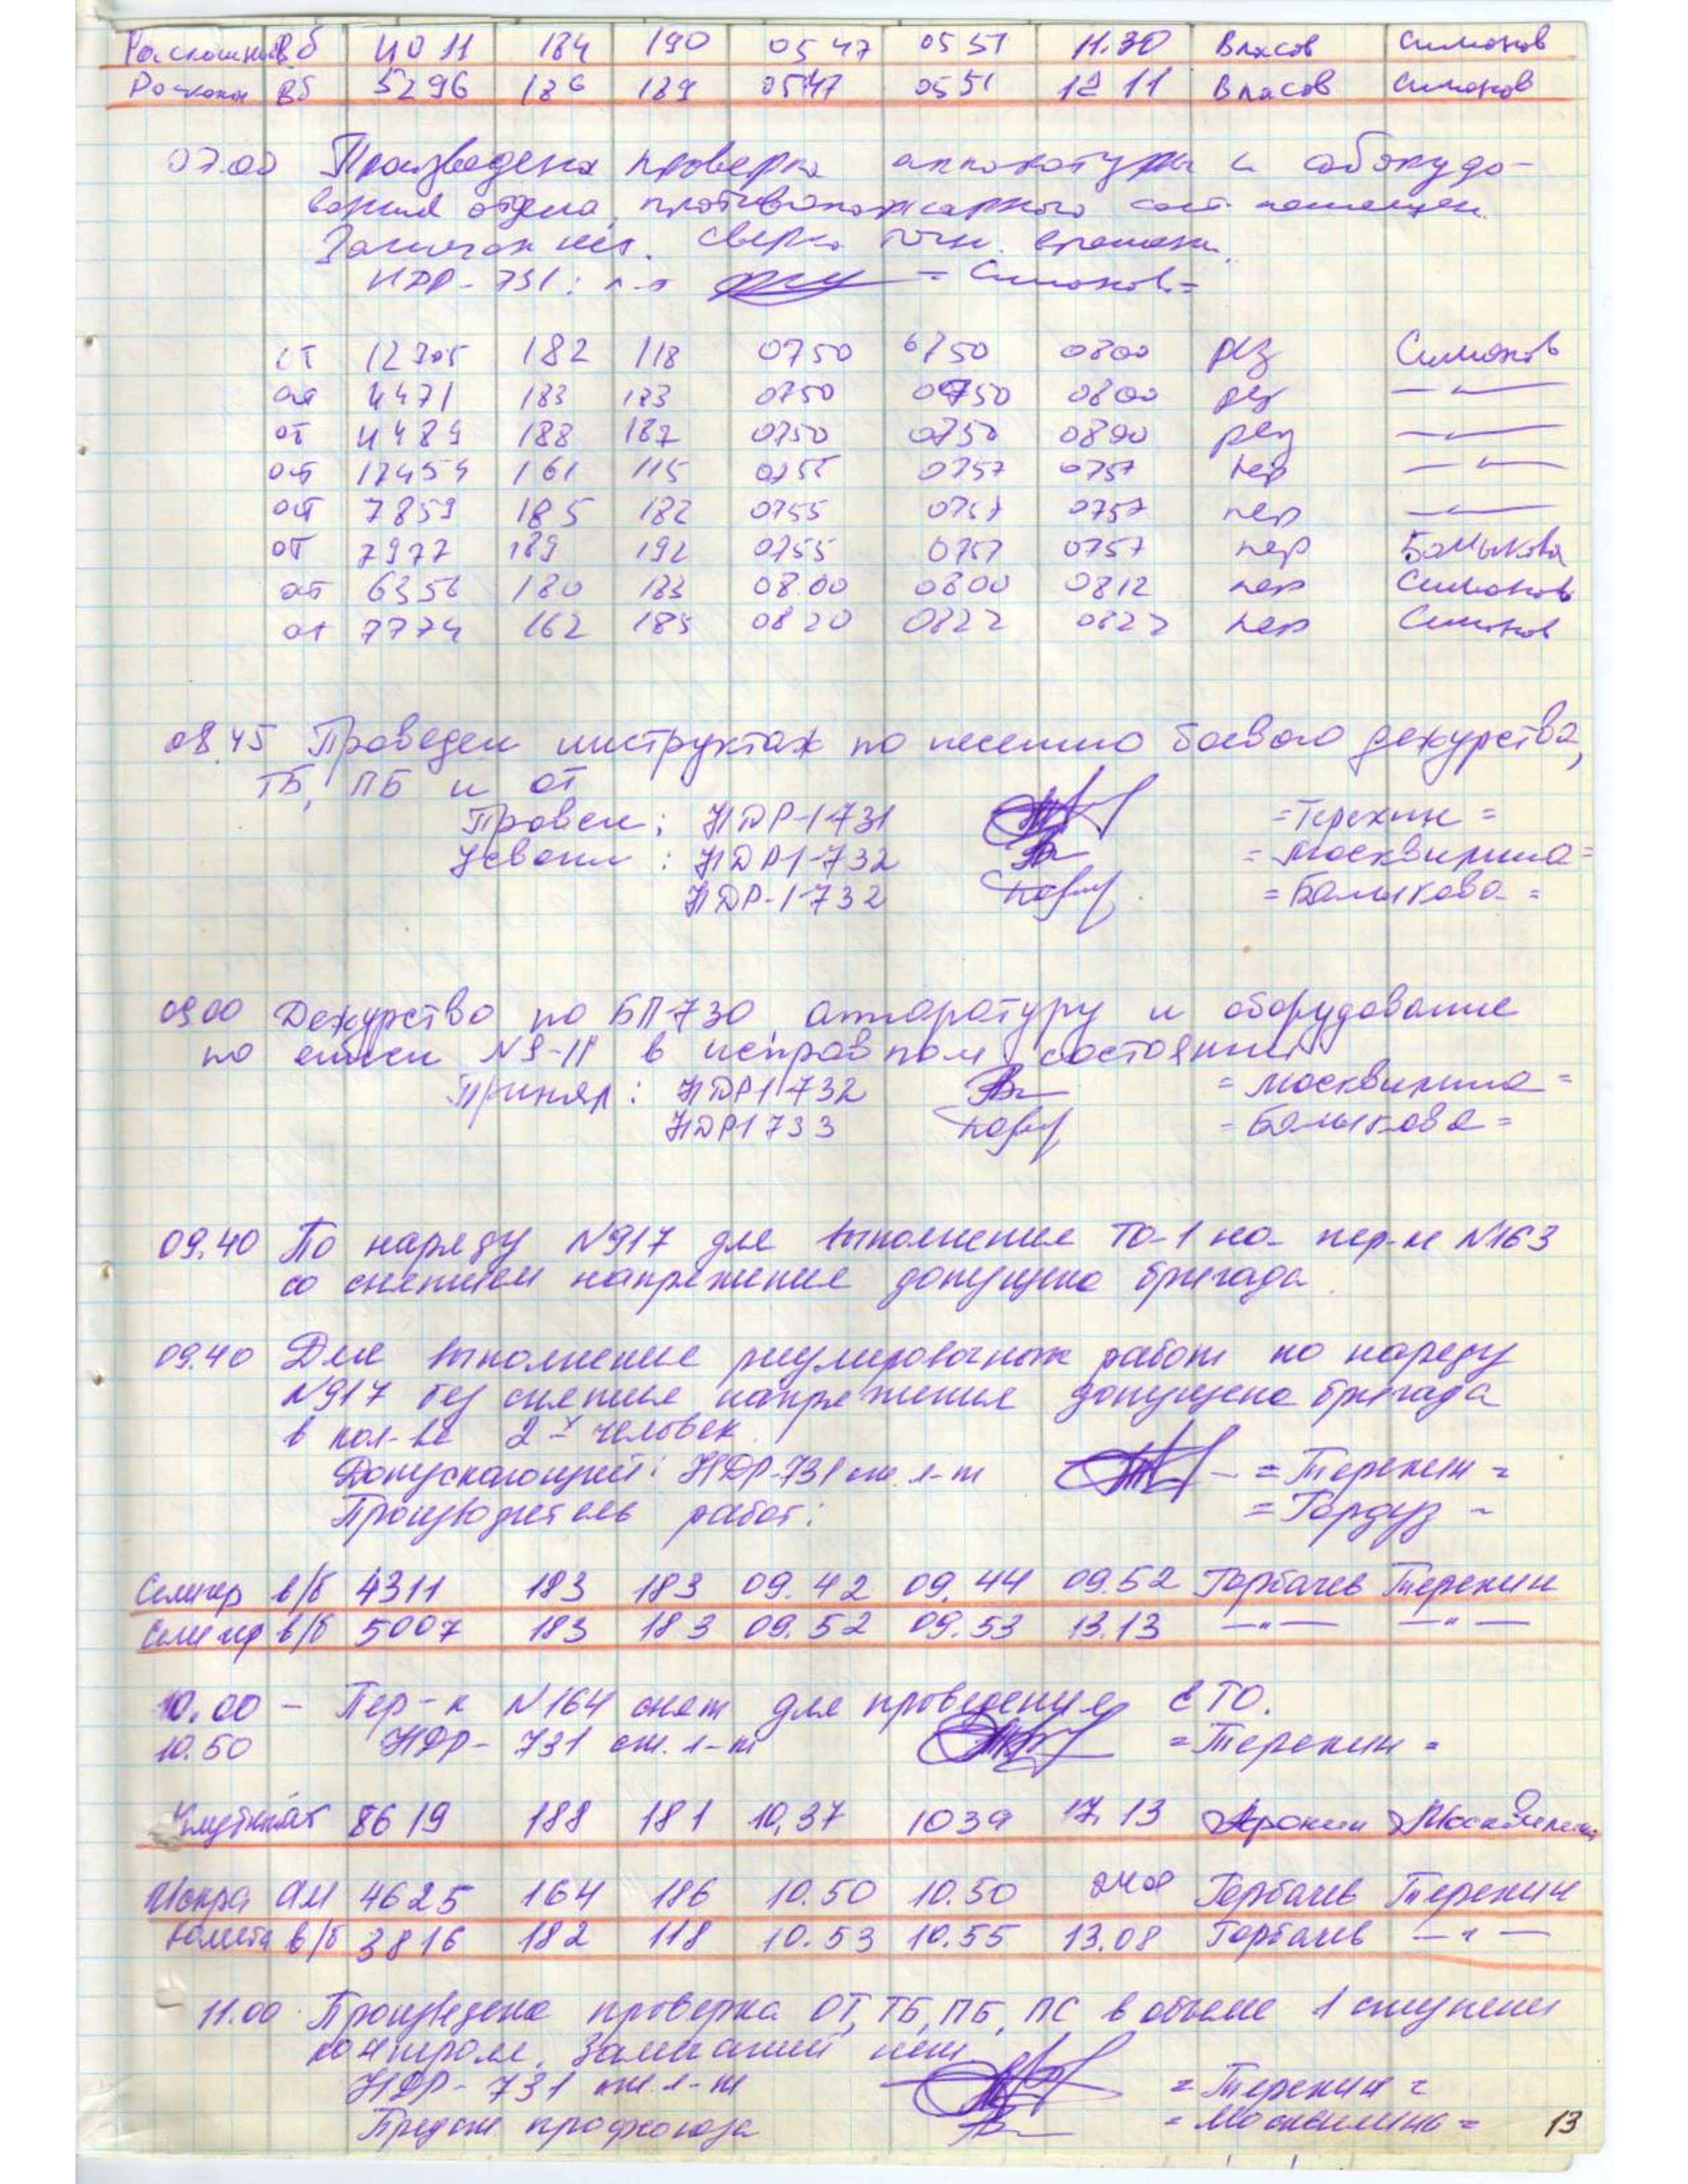 вб 4011 184 190 0547 0551 11.30 Власов Симонов
вб 5296 186 189 0547 0551 12 11 Власов Симонов
07.00 Произведена проверка аппаратуры и оборудо-
вания отдела, противопожарного сост. помещен.
Замечан нет. Сверка точн. времени.
НДР-731: л-т = Симонов =
от 12305 182 118 0750 0750 0800 рез Симонов
от 4471 183 183 0750 0750 0800 рез —"—
от 4489 188 187 0750 0750 0800 рез —"—
от 12454 161 115 0755 0757 0757 пер —"—
от 7859 185 182 0755 0757 0757 пер —"—
от 7977 189 192 0755 0757 0757 пер Балыкова
от 6356 180 183 08.00 0800 0812 пер Симонов
от 7774 162 185 0820 0822 0822 пер Симонов
08.45 Проведен инструктаж по несению боевого дежурства,
ТБ, ПБ и ОТ
Провел: НДР-1-731 = Терехин =
Усвоил: НДР1-732 = Москвирина =
НДР-1-732 = Балыкова =
09.00 Дежурство по БП-730, аппаратуру и оборудование
по описи N 9-11 в исправном состоянии
Принял: НДР1 732 = Москвирина =
НДР1 733 = Балыкова =
09.40 По наряду N917 для выполнения ТО-1 на пер-ке N163
со снятием напряжения допущена бригада.
09.40 Для выполнения регулировочных работ по наряду
N917 без снятия напряжения допущена бригада
в кол-ве 2-х человек.
Допускающий: НДР-731 ст. л-т = Терехин =
Производитель работ: = Гордуз =
Селигер в/б 4311 183 183 09.42 09.44 09.52 Горбачев Терехин
Селигер в/б 5007 183 183 09.52 09.53 13.13 —"— —"—
10.00 – Пер-к N164 снят для проведения ЕТО.
10.50 НДР-731 ст. л-т = Терехин =
8619 188 181 10,37 1039 17.13
Искра АМ 4625 164 186 10.50 10.50 2408 Горбачев Терехин
Комета в/б 3816 182 118 10.53 10.55 13.08 Горбачев —"—
11.00 Произведена проверка ОТ, ТБ, ПБ, ПС в объеме 1 ступени
контроля. Замечаний нет
НДР-731 ст. л-т = Терехин =
Предст профсоюза = Москвирина =
13